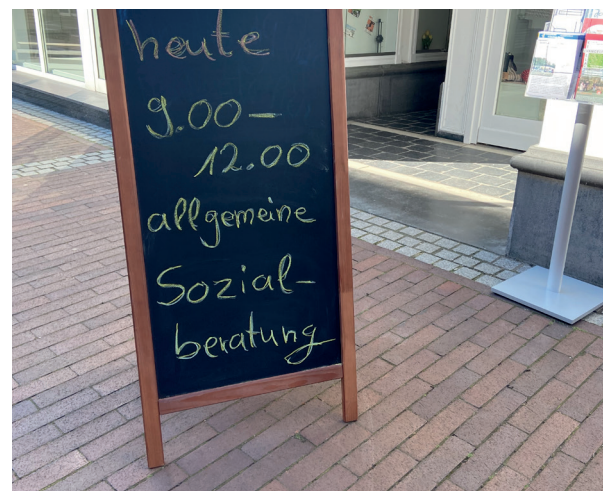 heute
9.00–
12.00
allgemeine
Sozial-
beratung